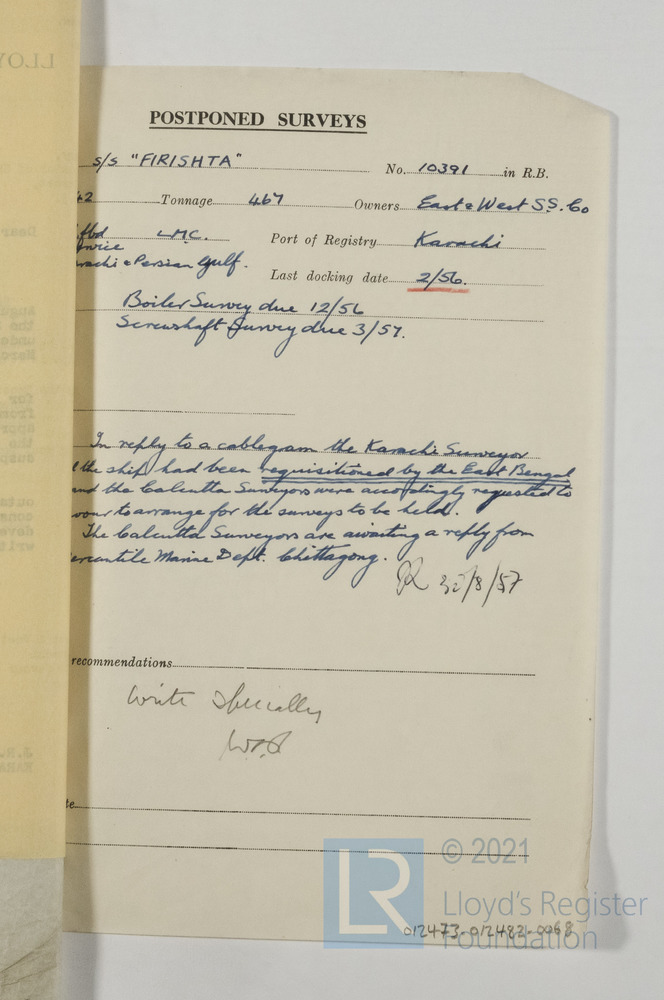 LLOY
POSTPONED SURVEYS
s/s "FIRISHTA" No. 10391 in R.B.
42 Tonnage 467 Owners East & West S.S. Co
LMC. Port of Registry Karachi
& Persian Gulf.
Last docking date 2/56.
Boiler Survey due 12/56
Screwshaft Survey due 3/57.
In reply to a cablegram the Karachi Surveyor
the ship had been requisitioned by the East Bengal
and the Calcutta Surveyors were accordingly requested to
vour to arrange for the surveys to be held.
The Calcutta Surveyors are awaiting a reply from
ercantile Marine Dept. Chittagong.
30/8/57
recommendations
Write specially
te
© 2021
LR
Lloyd's Register
Foundation
012473-012482-0068